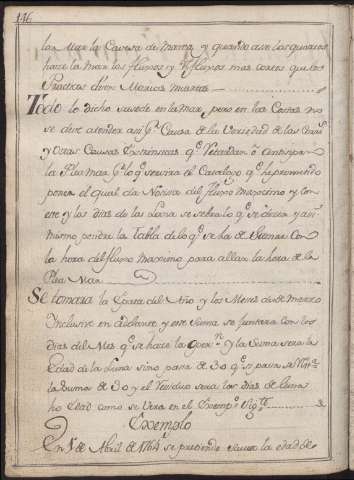 146
las Mar la Cavesa de Marea y quando ave las quartas
hase la Mar los fluxos y Rfluxos mas cortos que los
Practicos disen Mareas muertas
Todo lo dicho susede en la mar, pero en las Costas no
se deve atender asi pr. Causa de la Variedad de las Cos.
y Otras Causas Extrinsicas qe. Retardan o antisipan
la Plea mar pr. lo qe. servira el Catalogo qe. he promendo
poner el qual da Noticia del fluxo Maximo y con
este y los dias de la Luna se sabra lo qe. se decea y asi
mismo pondre la Tabla de lo qe. se ha de Sumar Con
la hora del fluxo maximo para allar la hora de la
Plea Mar
Se tomara la Epacta del Año y los Meses desde Marzo
Inclusive en adelante y esta Suma se Juntara con los
dias del Mes qe. se hace la Operon. y la Suma sera la
Edad de la Luna sino pasa de 30 qe. si pasa se
la Suma de 30 y el Residuo sera los dias de Luna
ho Edad como se Vera en el Exempo. Sigte.
Exemplo
En 1º de Abril de 1764 se pretende saver la edad de